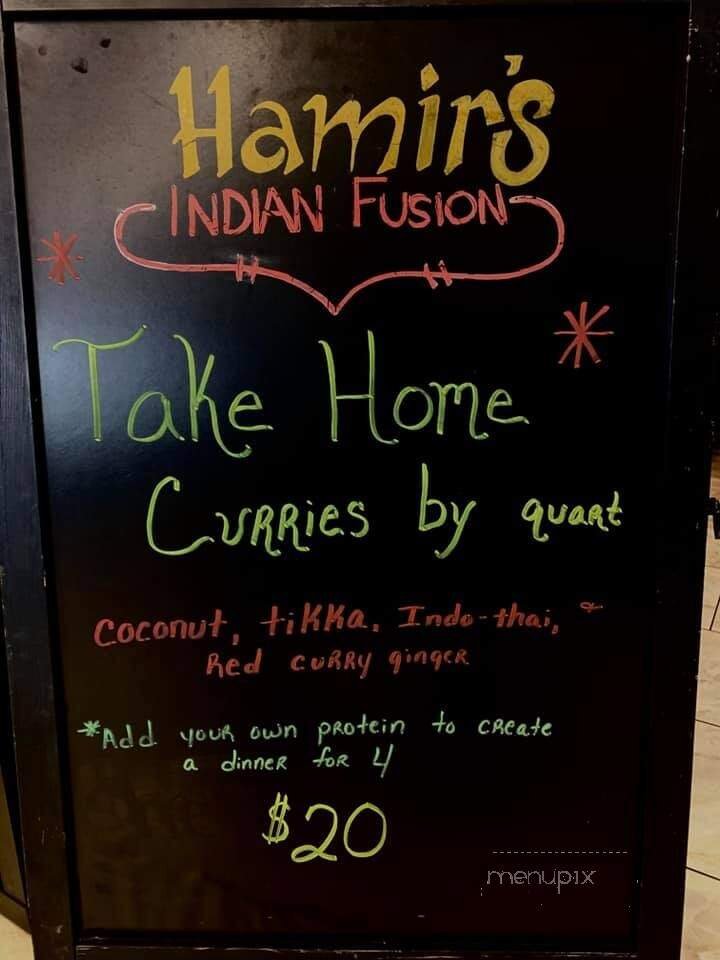 Hamir's
INDIAN FUSION
Take Home
Curries by quart
Coconut, tikka, Indo-thai, &
Red curry ginger
*Add your own protein to create
a dinner for 4
$20
menupix